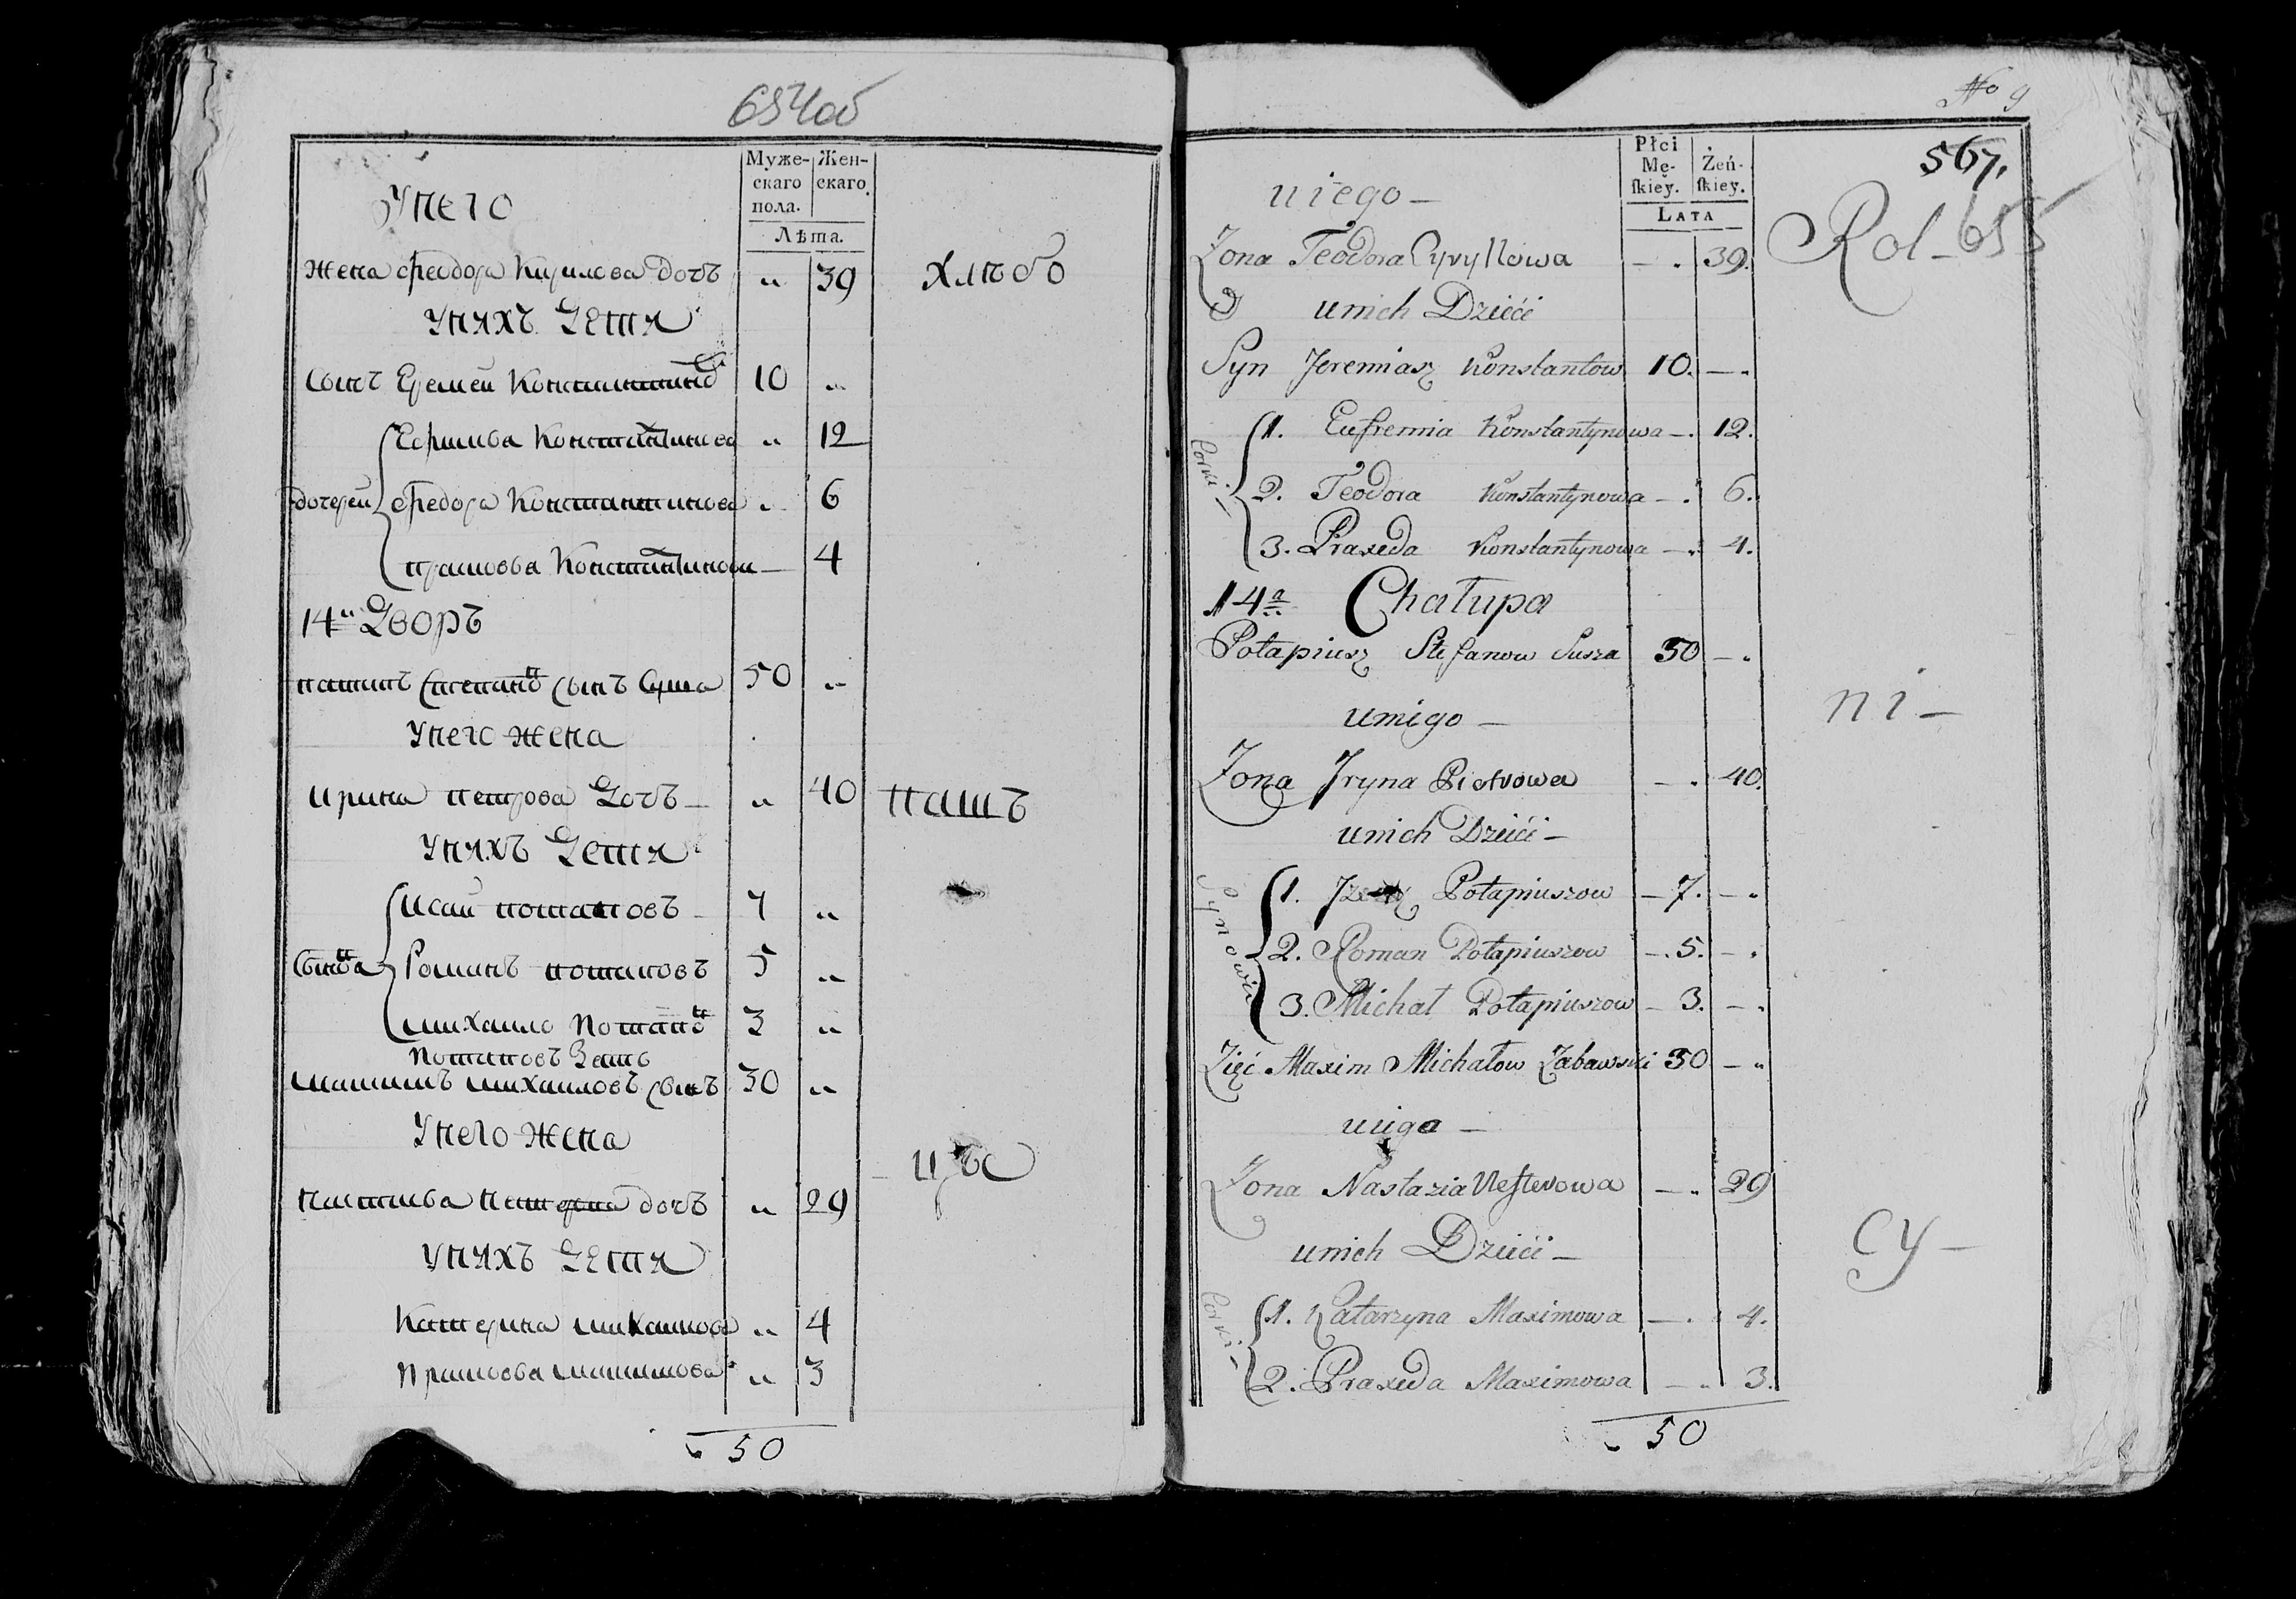 654об
Муже-
скаго
пола.
Жен-
скаго.
Лѣта.
Унего
жена федора Кирилова дочъ " 39
хлѣбо
Унихъ Дети
сынъ Еремей Константино 10 "
Константинова " 12
дочерей федора Константинова " 6
прасковя Константинова — 4
14й Дворъ
патапъ степановъ сынъ суша 50 "
Унего жена
ирина петрова Дочъ — " 40
пашъ
Унихъ Дети
Исай потаповъ 7 "
Романъ потаповъ 5 "
михайло потапов 3 "
Потаповъ Зять
максимъ михайловъ сынъ 30 "
Унего жена
дочъ " 29
Унихъ Дети
Катерина " 4
Прасковя максимова " 3
50
No 9
567.
Płci
Mę-
ſkiey.
Żeń-
ſkiey.
Lata
Rol - 655
uiego —
Zona Teodora Cyryllowa — . 39.
unich Dzieci
Syn Jeremiasz Konstantow 10. — .
Corki —
1. Eufremia Konstantynowa — . 12.
2. Teodora Konstantynowa — . 6.
3. Praxeda Konstantynowa — . 4.
14a Chałupa
Potapiusz Stefanow Susza 50 — .
ni —
umigo —
Zona Jryna Piotrowa — . 40.
unich Dzieci —
Synowie
1. Potapiuszow — 7. — .
2. Roman Potapiuszow — . 5. — .
3. Michał Potapiuszow — 3. — .
Zięć Maxim Michałow Zabawski 30 — "
uiigo —
Zona Nastazia Nesterowa — . 29
cy —
unich Dzieci —
Corki —
1. Katarzyna Maximowa — . 4.
2. Praxeda Maximowa — " 3.
50